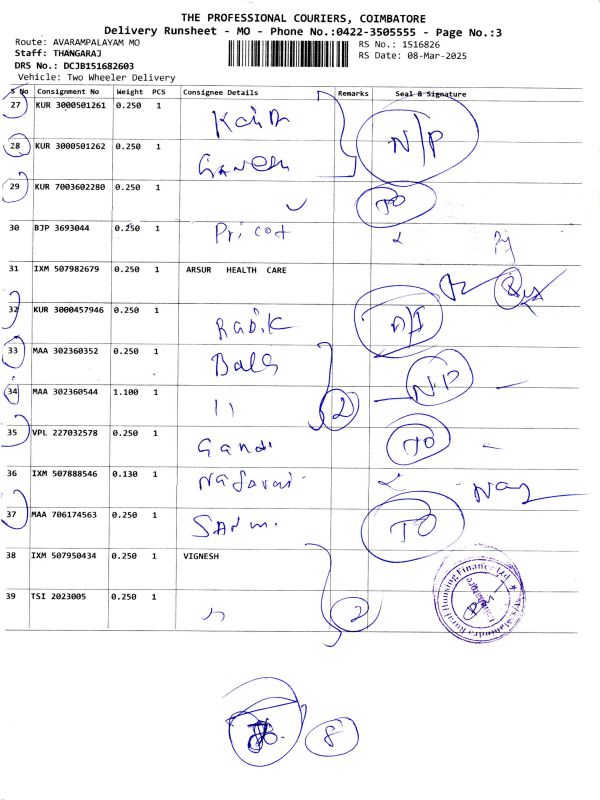 THE PROFESSIONAL COURIERS, COIMBATORE
Delivery Runsheet - MO - Phone No.:0422-3505555 - Page No.:3
Route: AVARAMPALAYAM MO
Staff: THANGARAJ
DRS No.: DCJB151682603
Vehicle: Two Wheeler Delivery
RS No.: 1516826
RS Date: 08-Mar-2025
S No Consignment No Weight PCS Consignee Details Remarks Seal & Signature
27 KUR 3000501261 0.250 1
28 KUR 3000501262 0.250 1 Ganesh N/P
29 KUR 7003602280 0.250 1 TO
30 BJP 3693044 0.250 1 Pricot
31 IXM 507982679 0.250 1 ARSUR HEALTH CARE
32 KUR 3000457946 0.250 1 Rabik
33 MAA 302360352 0.250 1 Bala
34 MAA 302360544 1.100 1 11 2 NP
35 VPL 227032578 0.250 1 Gandi TO
36 IXM 507888546 0.130 1 Nagaraj Nag
37 MAA 706174563 0.250 1 TO
38 IXM 507950434 0.250 1 VIGNESH
39 TSI 2023005 0.250 1 2
Mahindra Rural Housing Finance Ltd
8